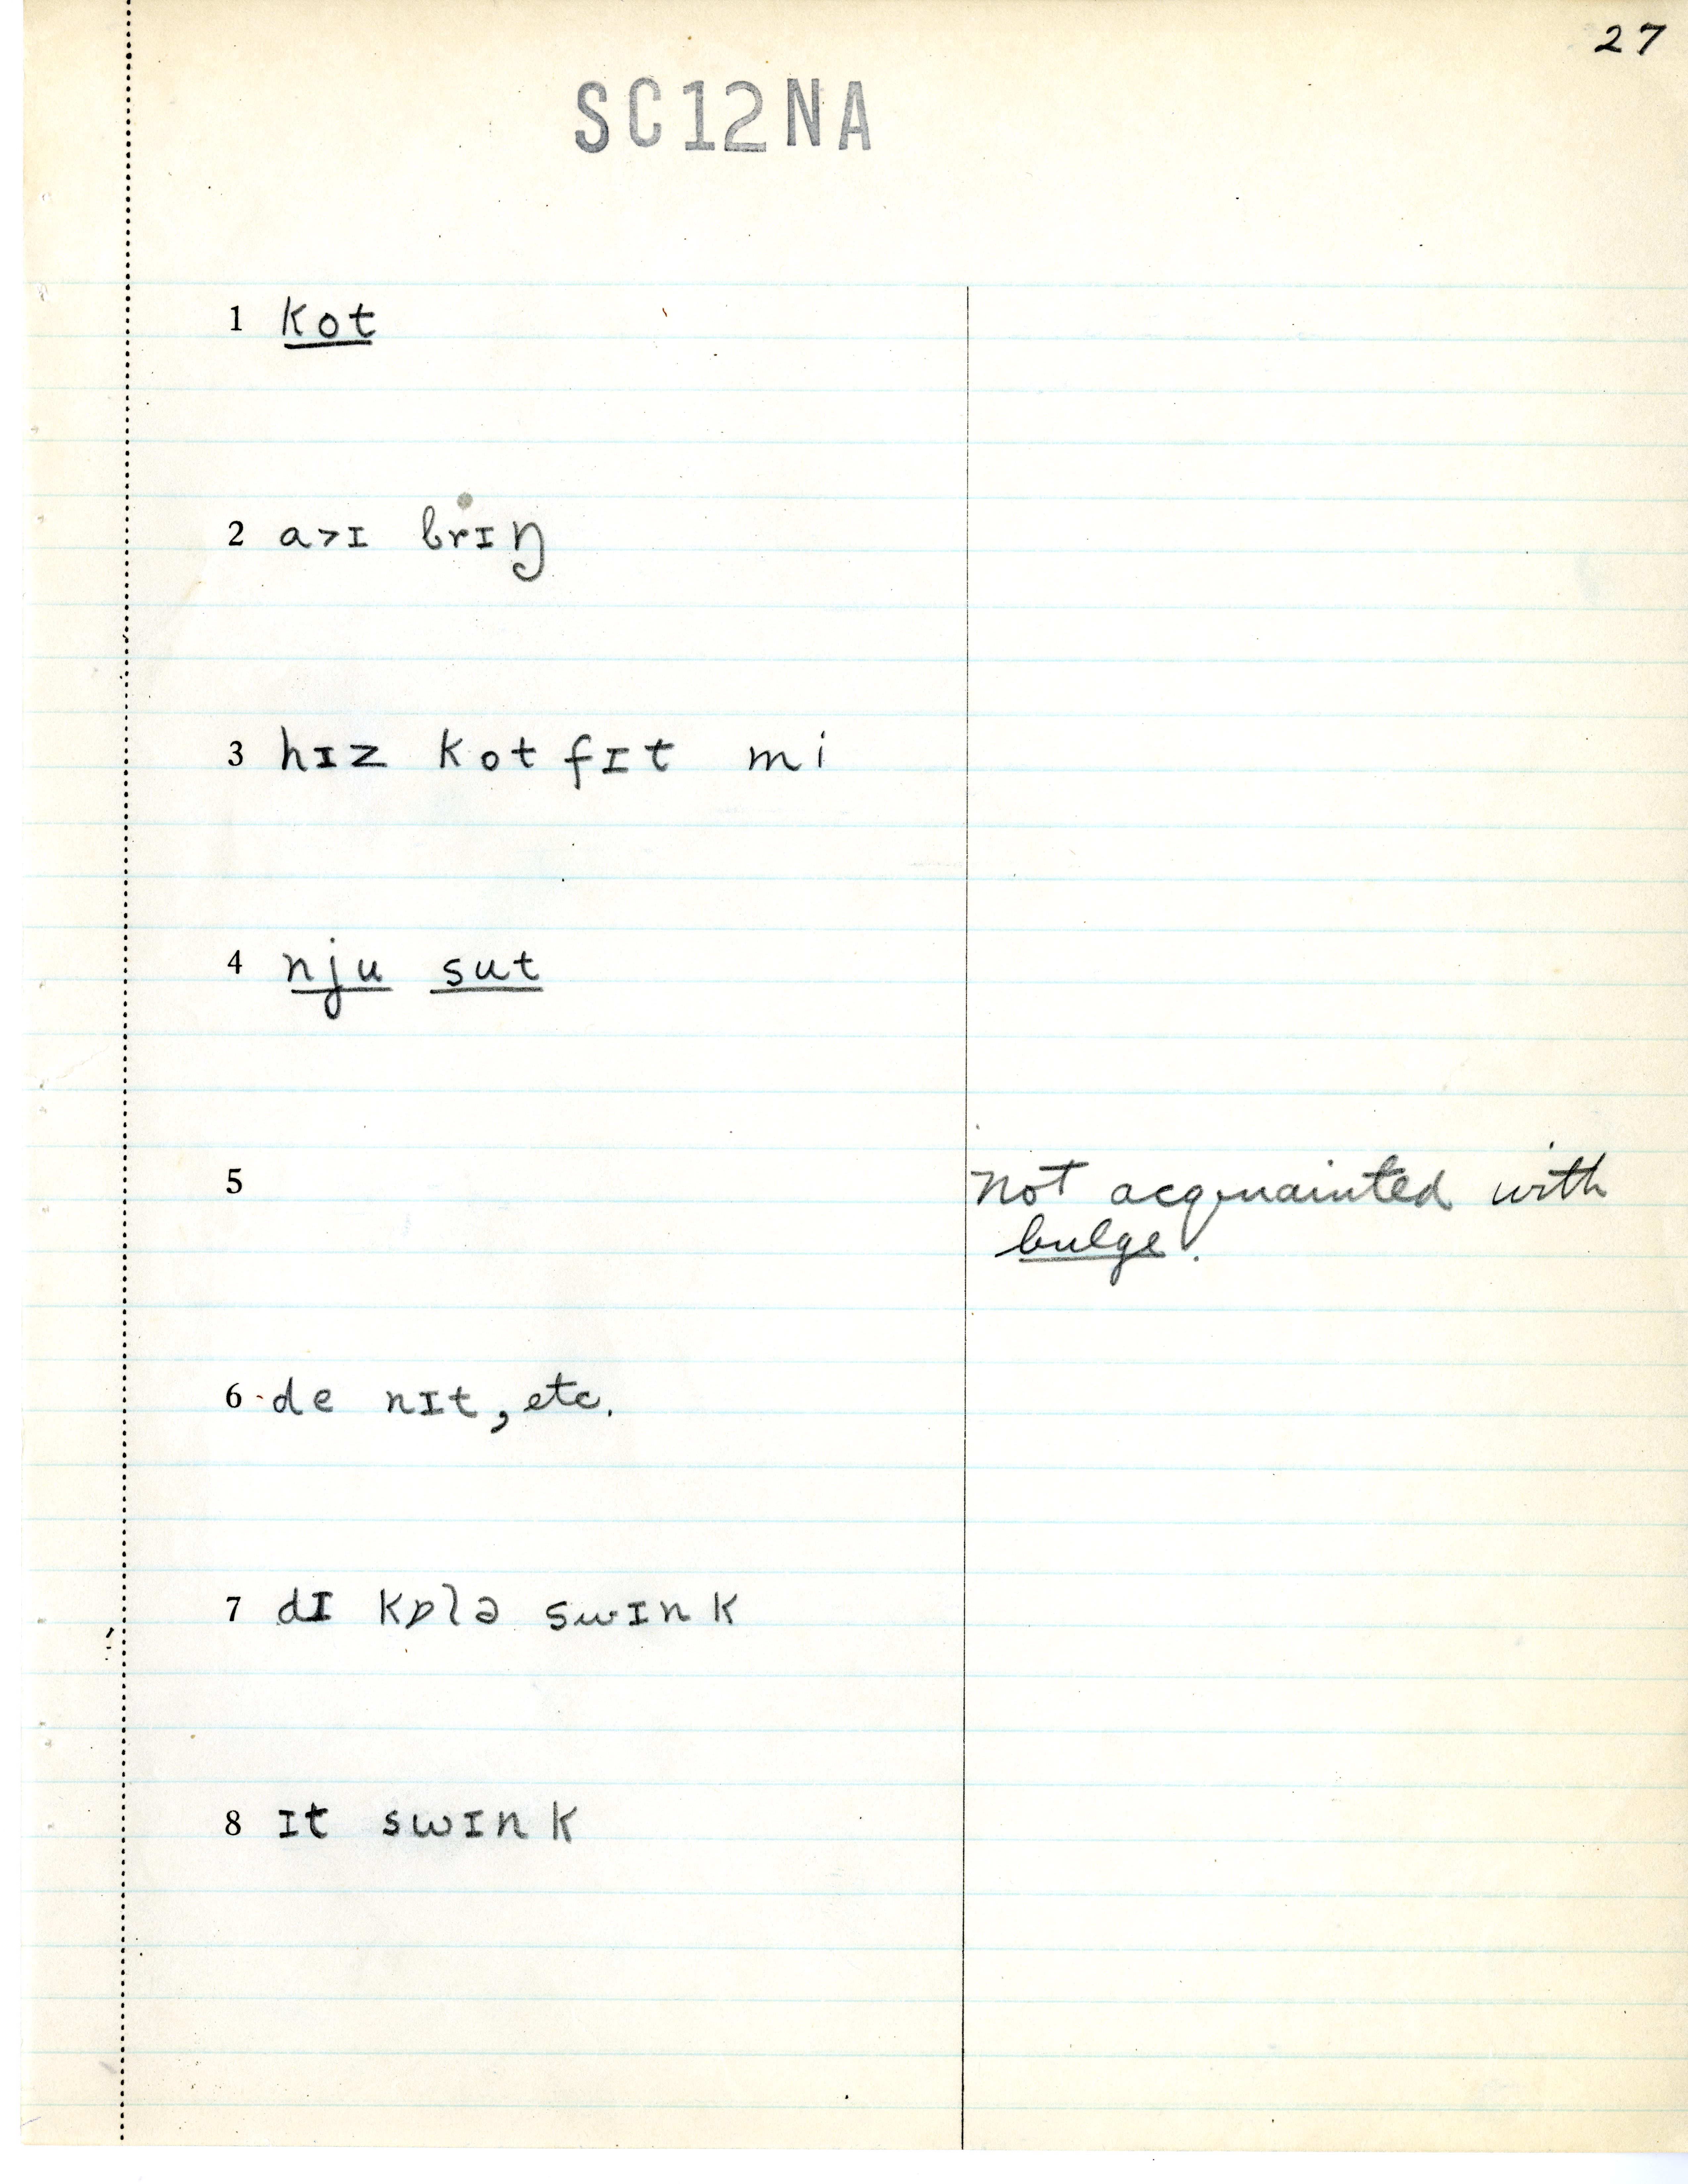 27
SC12NA
1 <u>kot</u>
2 a>ɪ brɪŋ
3 hɪz kot fɪt mi
4 <u>nju</u> <u>sut</u>
5 Not acquainted with
<u>bulge</u>.
6 de nɪt, etc.
7 dɪ kɒlə swɪnk
8 ɪt swɪnk